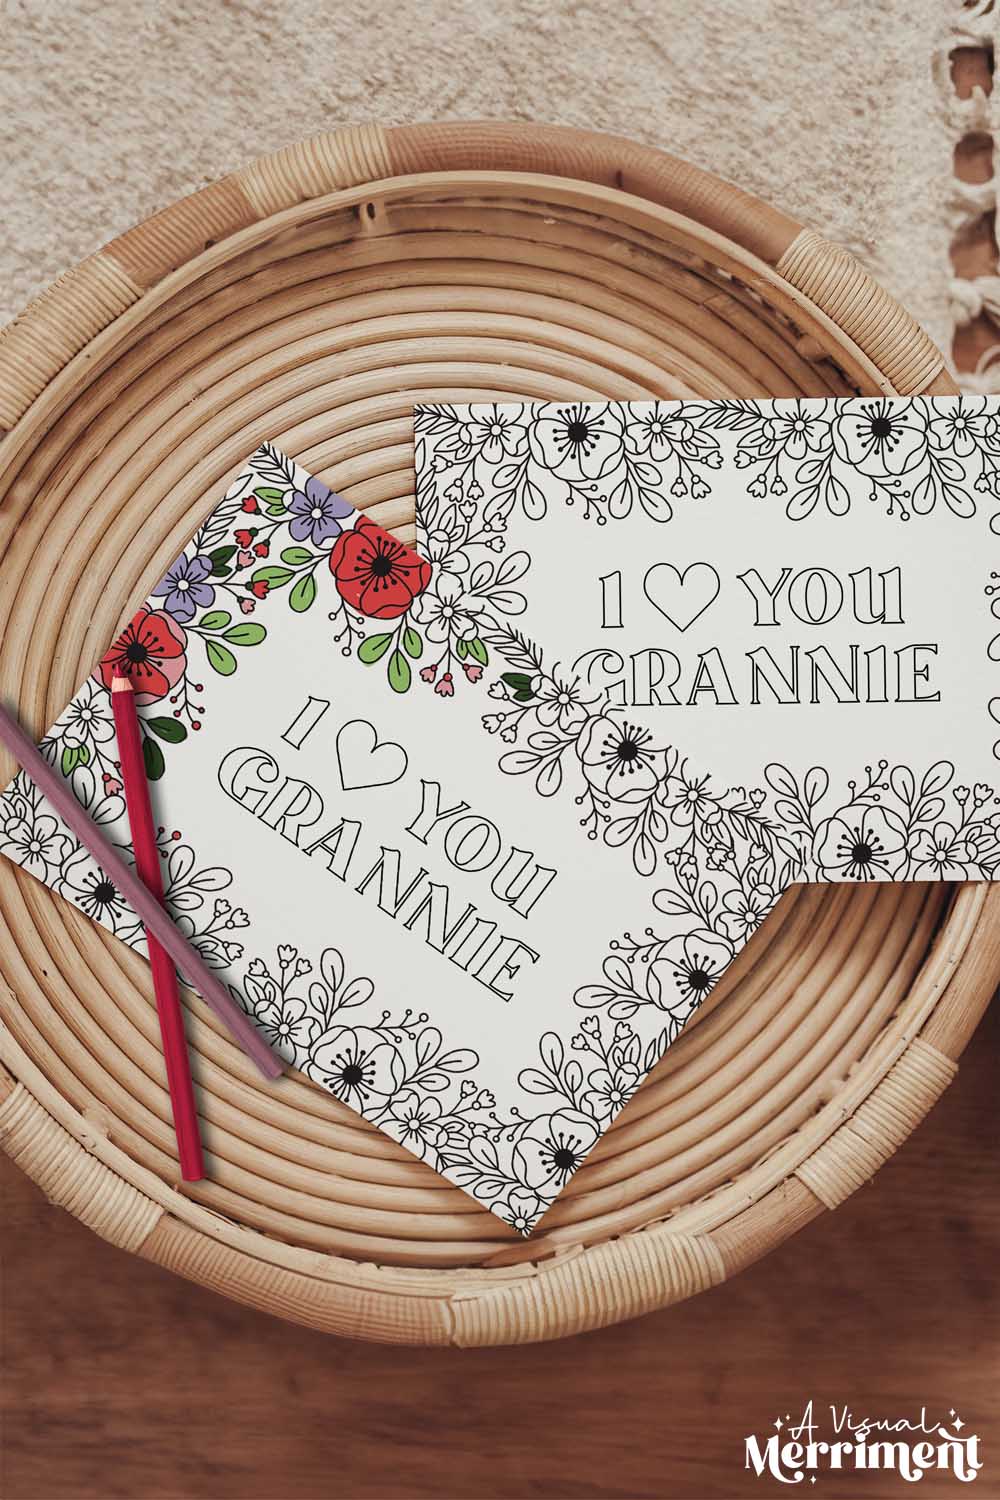 I ♡ YOU
GRANNIE
I ♡ YOU
GRANNIE
A Visual
Merriment